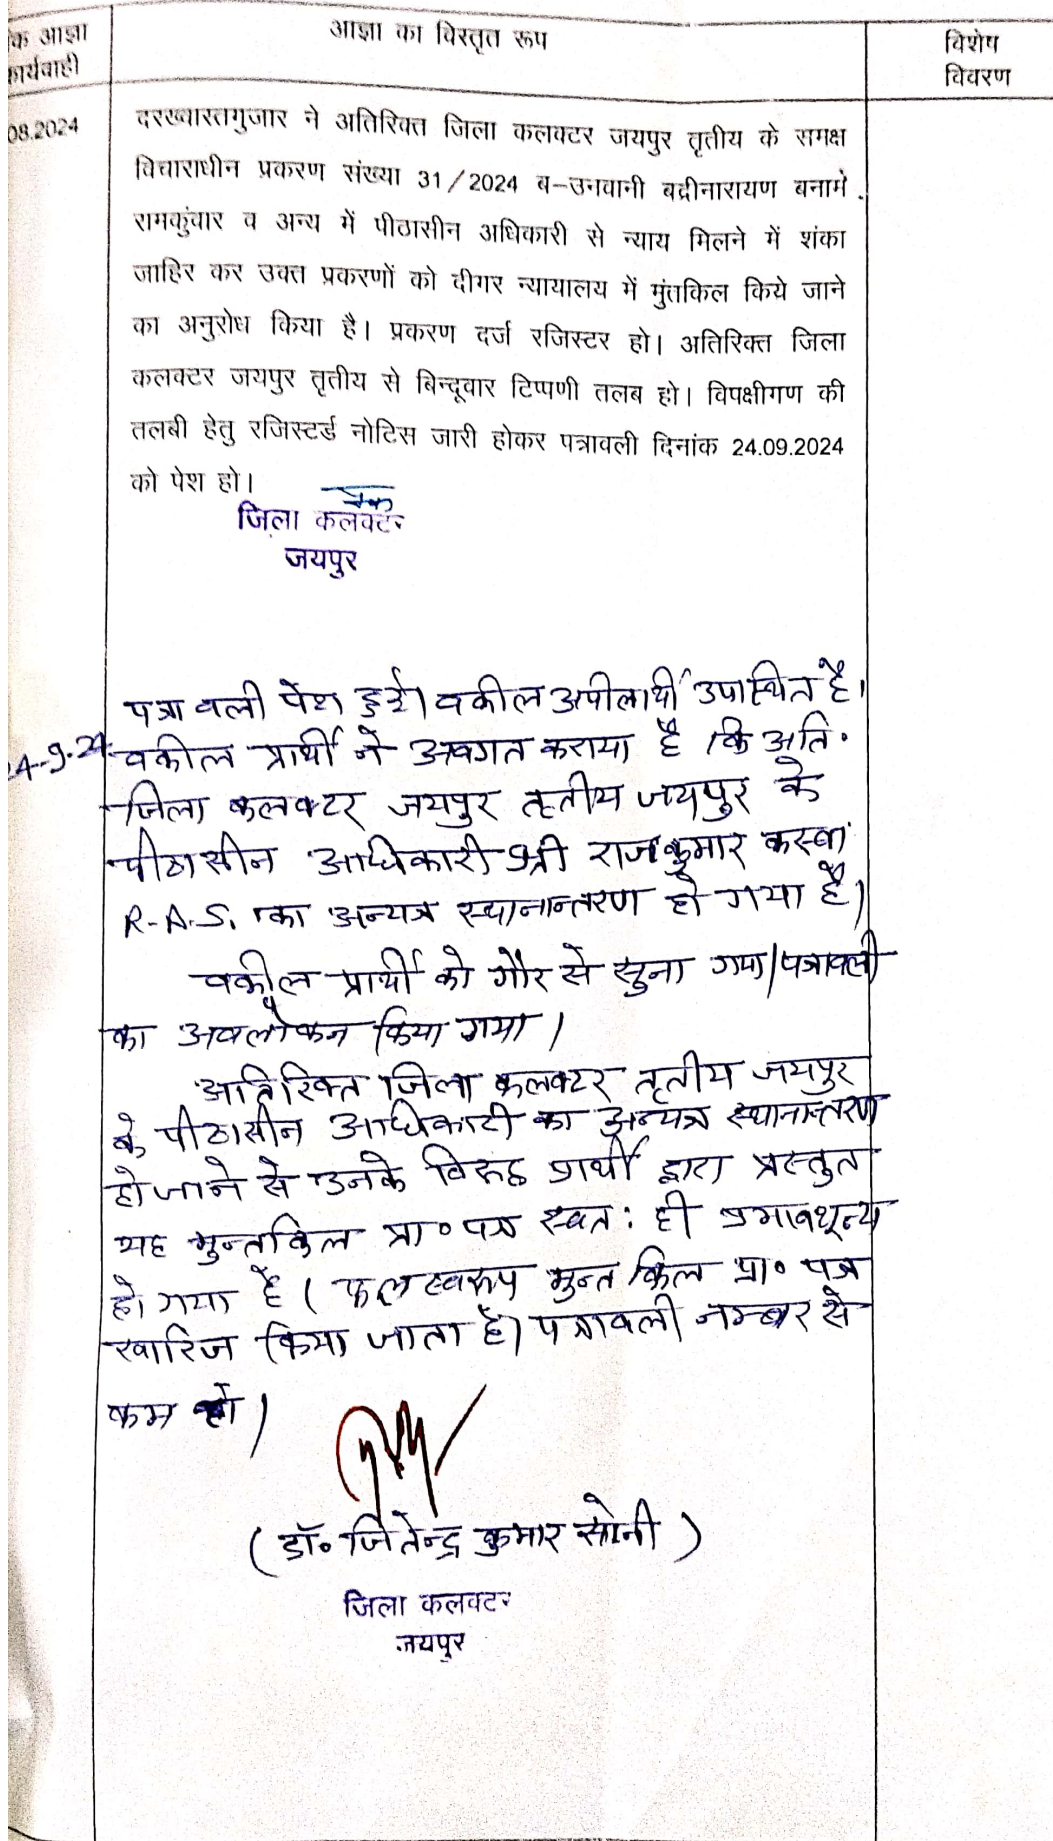 क आज्ञा
कार्यवाही
आज्ञा का विस्तृत रूप
विशेष
विवरण
08.2024
दरख्वास्तगुजार ने अतिरिक्त जिला कलक्टर जयपुर तृतीय के समक्ष
विचाराधीन प्रकरण संख्या 31/2024 ब-उनवानी बद्रीनारायण बनाम
रामकुंवार व अन्य में पीठासीन अधिकारी से न्याय मिलने में शंका
जाहिर कर उक्त प्रकरणों को दीगर न्यायालय में मुंतकिल किये जाने
का अनुरोध किया है। प्रकरण दर्ज रजिस्टर हो। अतिरिक्त जिला
कलक्टर जयपुर तृतीय से बिन्दूवार टिप्पणी तलब हो। विपक्षीगण की
तलबी हेतु रजिस्टर्ड नोटिस जारी होकर पत्रावली दिनांक 24.09.2024
को पेश हो।
जिला कलक्टर
जयपुर
पत्रावली पेश हुई। वकील अपीलार्थी उपस्थित है।
4-9-24
वकील प्रार्थी ने अवगत कराया है कि अति॰
जिला कलक्टर जयपुर तृतीय जयपुर के
पीठासीन अधिकारी श्री राजकुमार कस्वा
R.A.S. का अन्यत्र स्थानान्तरण हो गया है।
वकील प्रार्थी को गौर से सुना गया। पत्रावली
का अवलोकन किया गया।
अतिरिक्त जिला कलक्टर तृतीय जयपुर
के पीठासीन अधिकारी का अन्यत्र स्थानान्तरण
हो जाने से उनके विरुद्ध प्रार्थी द्वारा प्रस्तुत
यह मुन्तकिल प्रा॰ पत्र स्वत: ही प्रभावशून्य
हो गया है। फलस्वरुप मुन्तकिल प्रा॰ पत्र
खारिज किया जाता है। पत्रावली नम्बर से
कम हो।
(डॉ॰ जितेन्द्र कुमार सोनी)
जिला कलक्टर
जयपुर